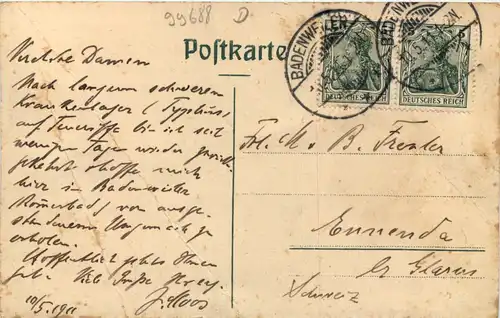 99688 D.
Postkarte
BADENWEILER
BADENWEILER
DEUTSCHES REICH
DEUTSCHES REICH
Damen
Nach langem schwerem
Krankenlager (Typhus,
auf Teneriffa bin ich seit
wenigen Tagen wieder
gekehrt & hoffe mich
hier in Badenweiler
(Römerbad) von ausge-
standenem Ungemach zu
erholen.
Hoffentlich geht es Ihnen
gut. Viele Grüsse
10/5.1911
Frl. M. & B.
Ennenda
bei Glarus
Schweiz